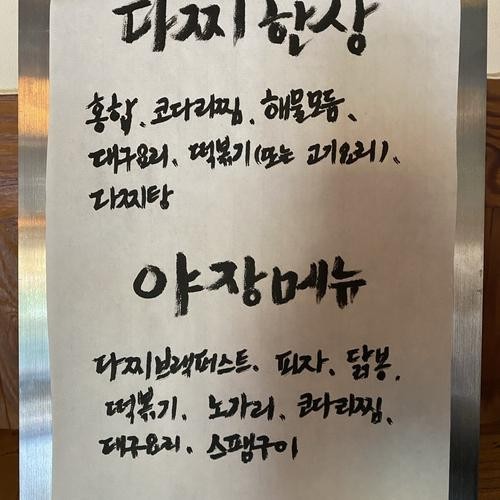 다찌한상
홍합、코다리찜、해물모듬、
대구요리、떡볶기(또는 고기요리)、
다찌탕
야장메뉴
다찌브랙퍼스트、피자、닭봉、
떡볶기、노가리、코다리찜、
대구요리、스팸구이